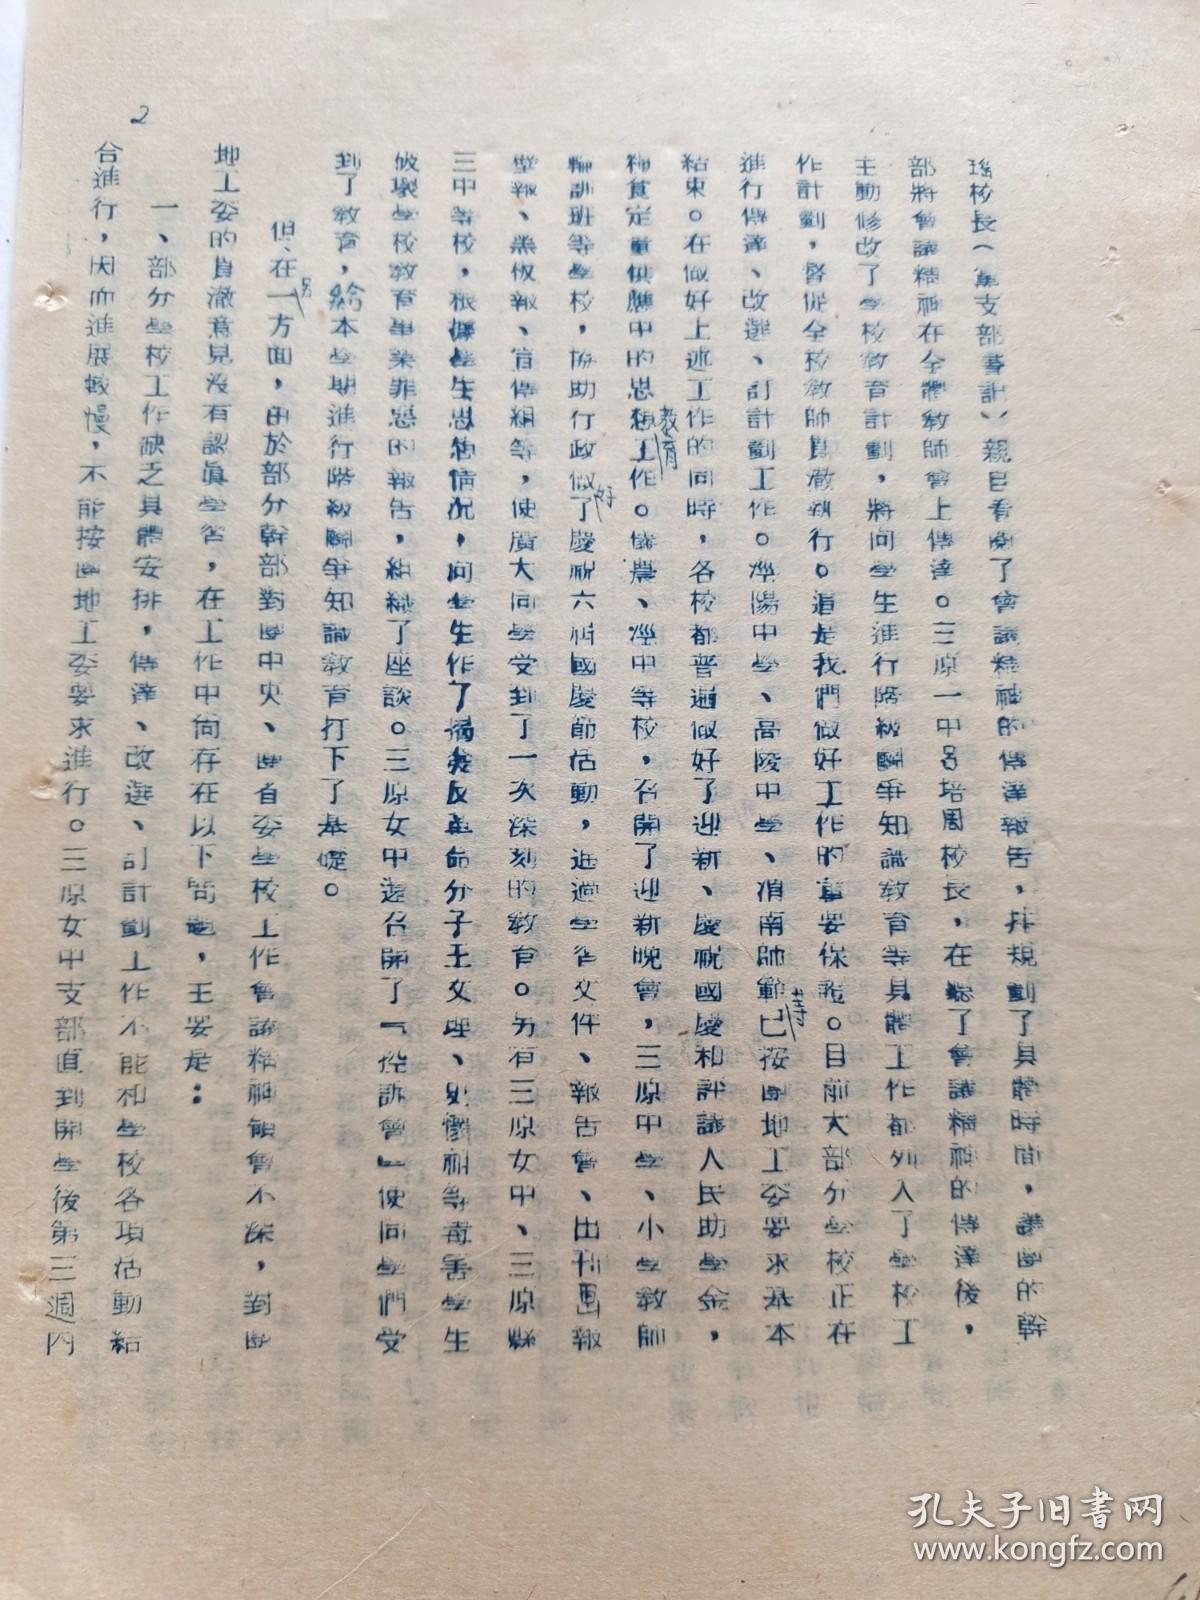 校長（黨支部書記）親自看閱了會議精神的傳達報告，并規劃了具體時間，讓團的幹
部將會議精神在全體教師會上傳達。三原一中吕培周校長，在聽了會議精神的傳達後，
主動修改了學校教育計劃，將向學生進行階級鬭爭知識教育等具體工作都列入了學校工
作計劃，督促全校教師負責執行。這是我們做好工作的重要保證。目前大部分學校正在
進行傳達、改選、訂計劃工作。涇陽中學、高陵中學、渭南師範等已按團地工委要求基本
結束。在做好上述工作的同時，各校都普遍做好了迎新、慶祝國慶和評議人民助學金，
糧食定量供應中的思想教育工作。農、涇中等校，召開了迎新晚會，三原中學、小學教師
輪訓班等學校，協助行政做好了慶祝六週國慶節活動，通過學習文件、報告會、出刊画報
壁報、黑板報、宣傳組等，使廣大同學受到了一次深刻的教育。另有三原女中、三原縣
三中等校，根據學生思想情况，向學生作了揭發反革命分子王文理、史懷祖等毒害學生
破壞學校教育事業罪惡的報告，組織了座談。三原女中還召開了「控訴會」使同學們受
到了教育，給本學期進行階級鬭爭知識教育打下了基礎。
但、在另一方面，由於部分幹部對團中央、團省委學校工作會議精神領會不深，對團
地工委的貫澈意見没有認真學習，在工作中尚存在以下問題，主要是：
一、部分學校工作缺乏具體安排，傳達、改選、訂計劃工作不能和學校各項活動結
合進行，因而進展較慢，不能按團地工委要求進行。三原女中支部直到開學後第三週内
2
孔夫子旧書网
www.kongfz.com